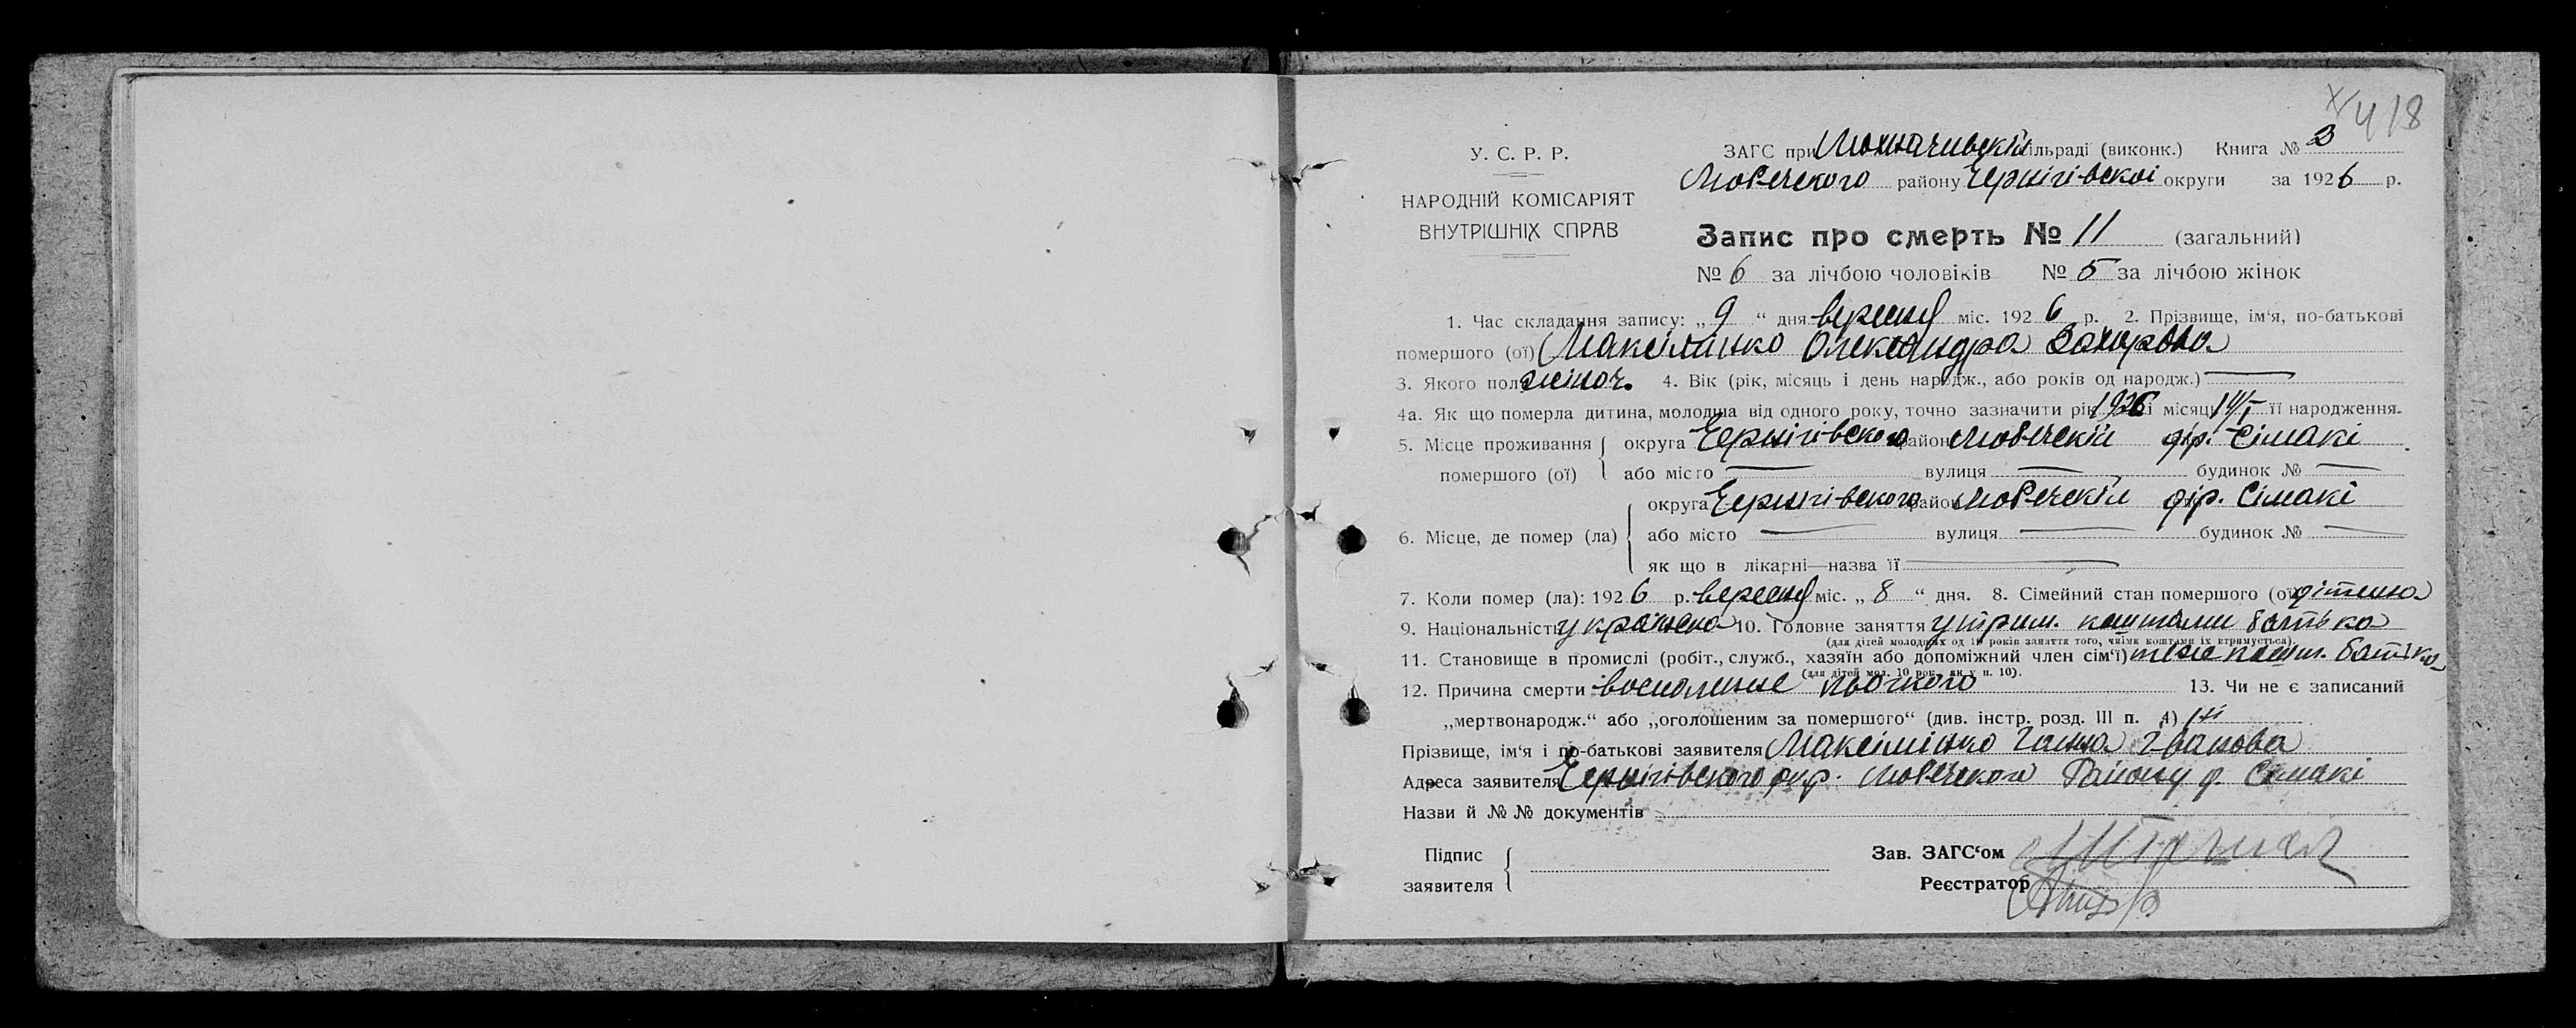 418
У. С. Р. Р.
НАРОДНІЙ КОМІСАРІЯТ
ВНУТРІШНІХ СПРАВ
ЗАГС при Мохначивскій сільраді (виконк.) Книга № 3
Любечского району Чернігівскоі округи за 1926 р.
Запис про смерть № 11 (загальний)
№ 6 за лічбою чоловіків № 5 за лічбою жінок
1. Час складання запису: „9“ дня вересня міс. 1926 р. 2. Прізвище, ім‘я, по-батькові
помершого (ої) Максімінко Олександра Захарова
3. Якого полу жіноч. 4. Вік (рік, місяць і день народж., або років од народж.) —
4а. Як що померла дитина, молодша від одного року, точно зазначити рік 1926 і місяць її народження.
5. Місце проживання помершого (ої) округа Чернігівского район Любечскій дір. Сімакі
або місто — вулиця — будинок № —
6. Місце, де помер (ла) округа Чернігівского район Любечскій дір. Сімакі
або місто — вулиця — будинок № —
як що в лікарні—назва її —
7. Коли помер (ла): 1926 р. вересня міс. „8“ дня. 8. Сімейний стан помершого (ої) дітина
9. Національність українка 10. Головне заняття утрим. коштами батька
(для дітей молодших од 10 років заняття того, чиїми коштами їх втримується).
11. Становище в промислі (робіт., служб., хазяїн або допоміжний член сім‘ї) теже кошт. батька
(для дітей мол. 10 рок., як у п. 10).
12. Причина смерти 13. Чи не є записаний
„мертвонародж.“ або „оголошеним за помершого“ (див. інстр. розд. III п. 4) ні
Прізвище, ім‘я і по-батькові заявителя Максімінко Ганна Іванова
Адреса заявителя Чернігівского окр. Любечского Району д. Сімакі
Назви й № № документів
Підпис заявителя
Зав. ЗАГС‘ом
Реєстратор